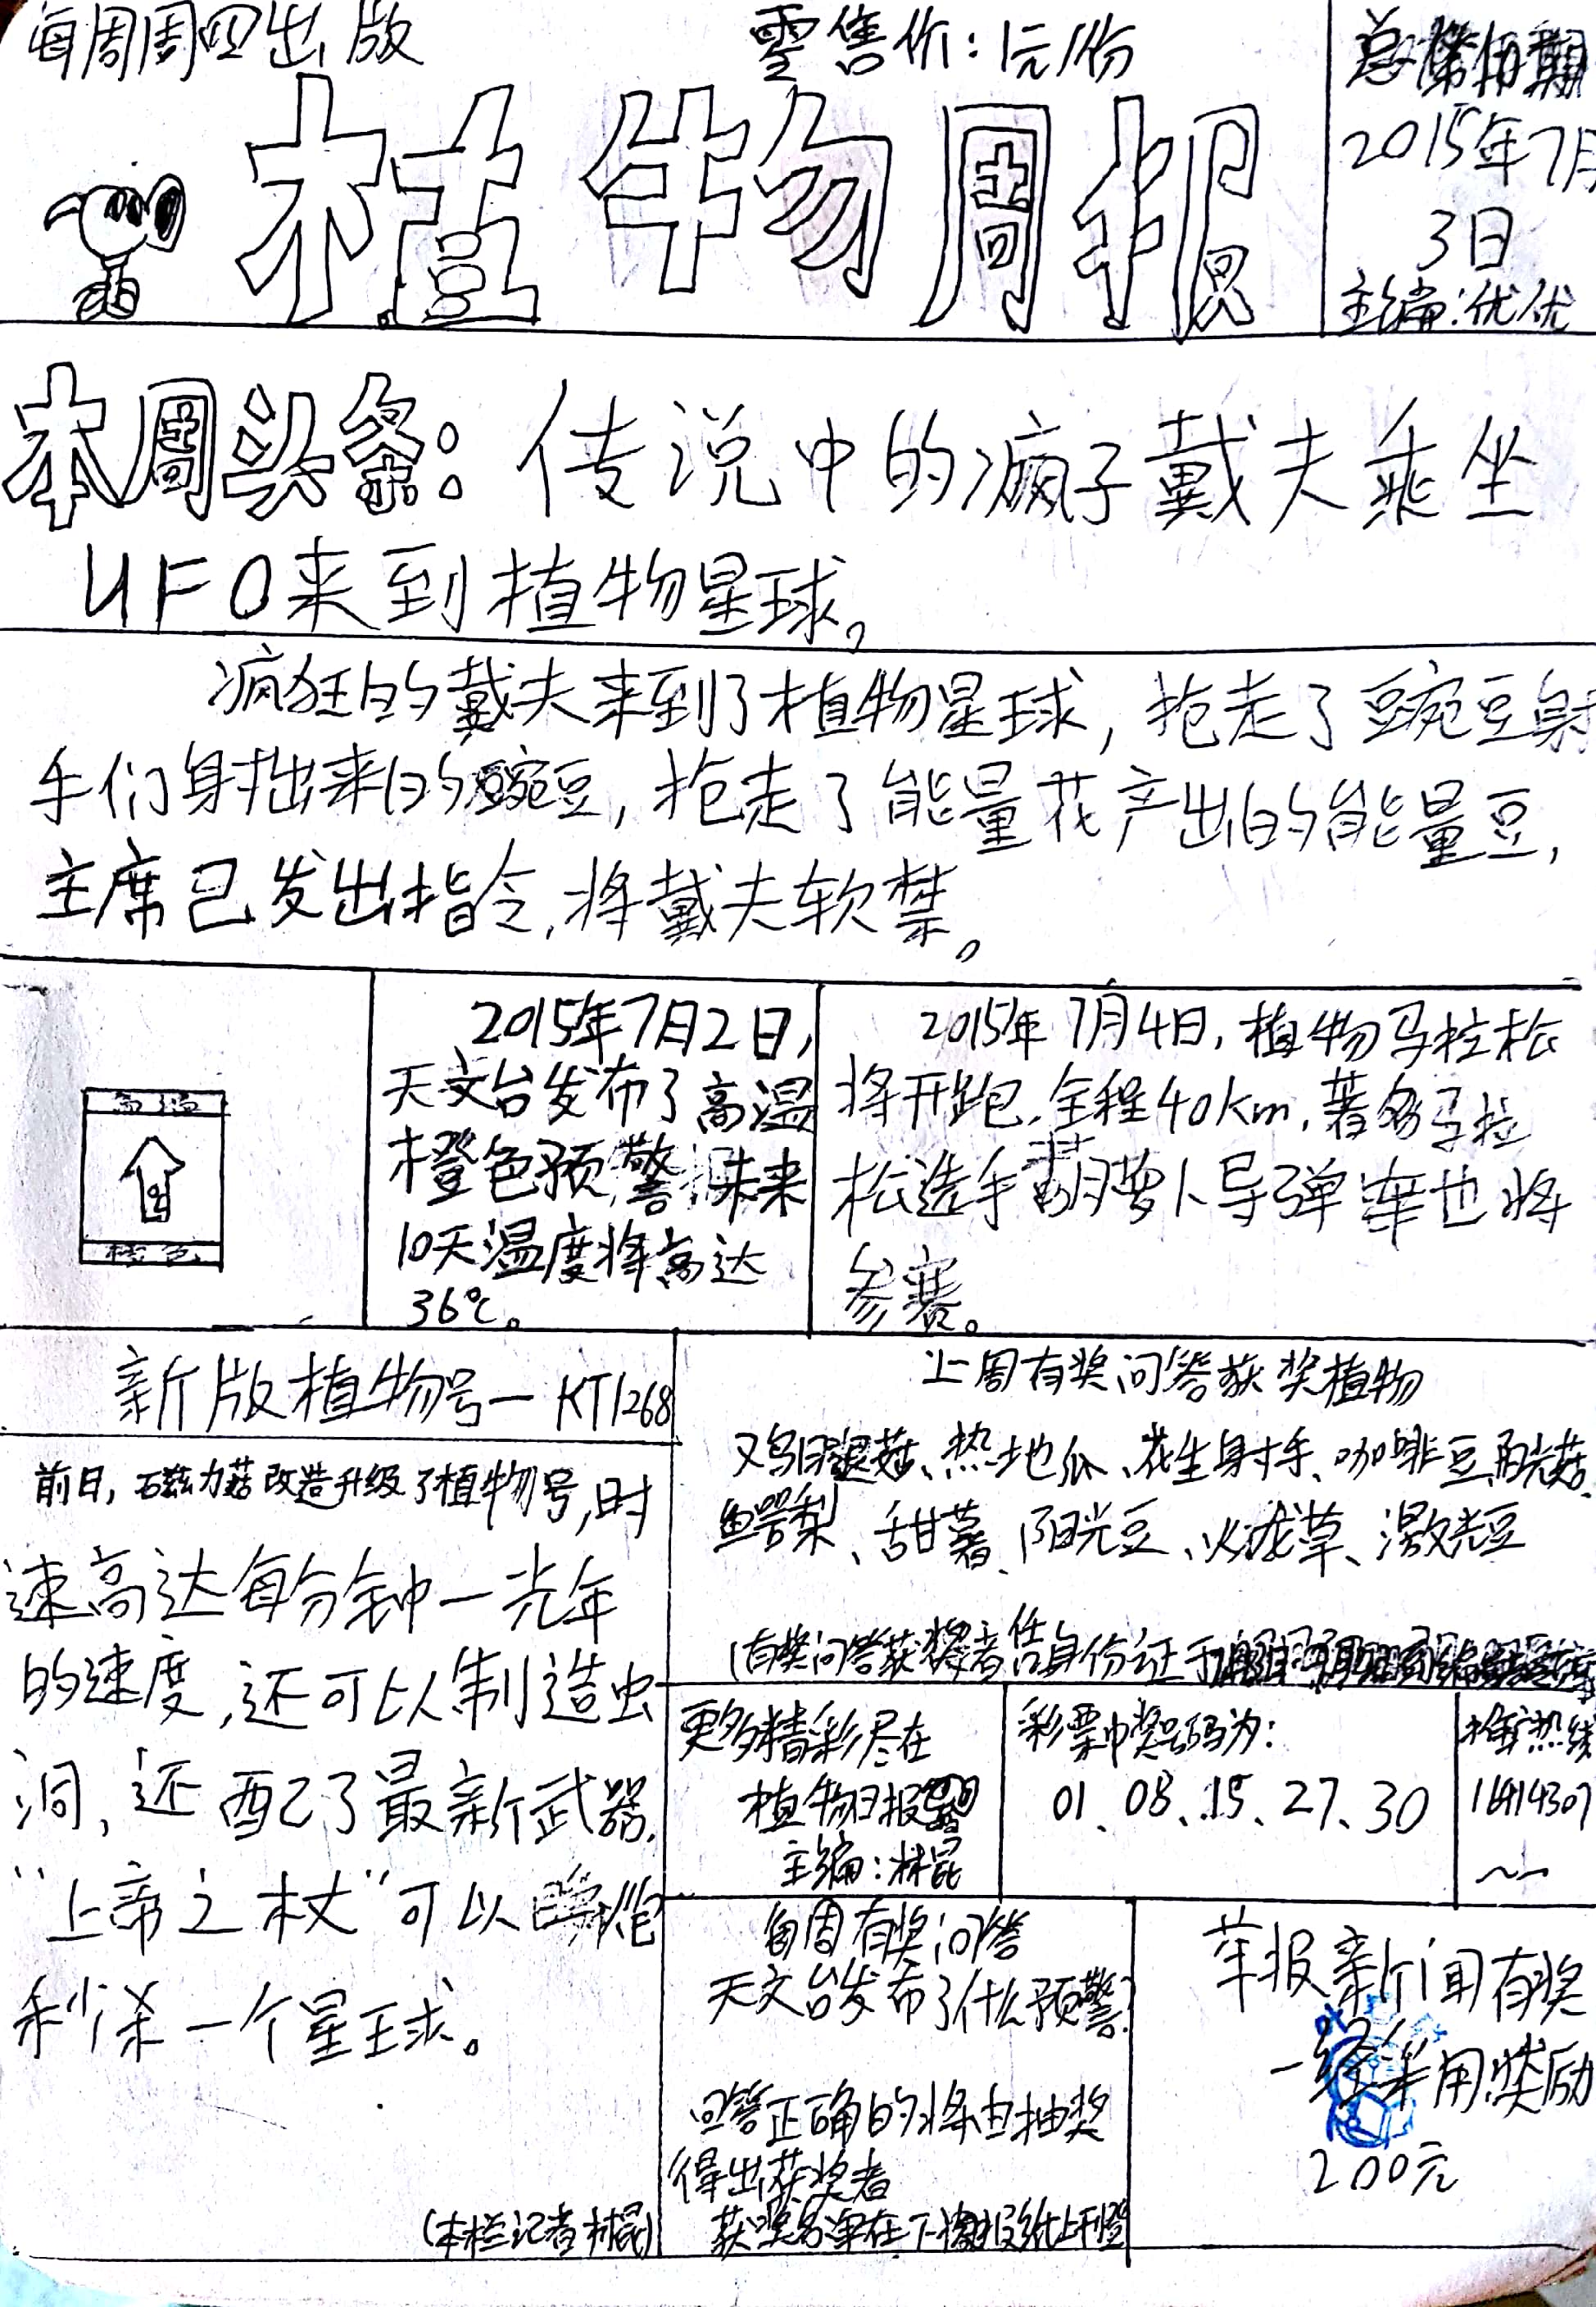 每周周四出版
零售价：1元/份
植物周报
2015年7月
3日
主编：优优
本周头条：传说中的疯子戴夫乘坐
UFO来到植物星球。
疯狂的戴夫来到了植物星球，抢走了豌豆射
手们射出来的豌豆，抢走了能量花产出的能量豆，
主席已发出指令，将戴夫软禁。
高温
橙色
2015年7月2日，
天文台发布了高温
橙色预警，未来
10天温度将高达
36℃。
2015年7月4日，植物马拉松
将开跑，全程40km，著名马拉
松选手胡萝卜导弹车也将
参赛。
新版植物号—KT1268
前日，磁力菇改造升级了植物号，时
速高达每分钟一光年
的速度，还可以制造虫
洞，还配了最新武器，
“上帝之杖”可以
秒杀一个星球。
(本栏记者林昆)
上周有奖问答获奖植物
鸡腿菇、热地瓜、花生射手、咖啡豆、阳光菇、
鱼鳄梨、甜薯、阳光豆、火龙草、激光豆
(有奖问答获奖者凭身份证于
更多精彩尽在
植物日报
主编：林昆
彩票中奖号码为：
01、08、15、27、30
热线
16414307
每周有奖问答
天文台发布了什么预警？
回答正确的将由抽奖
得出获奖者
获奖名单在下一期报纸上刊登
举报新闻有奖
一经采用奖励
200元